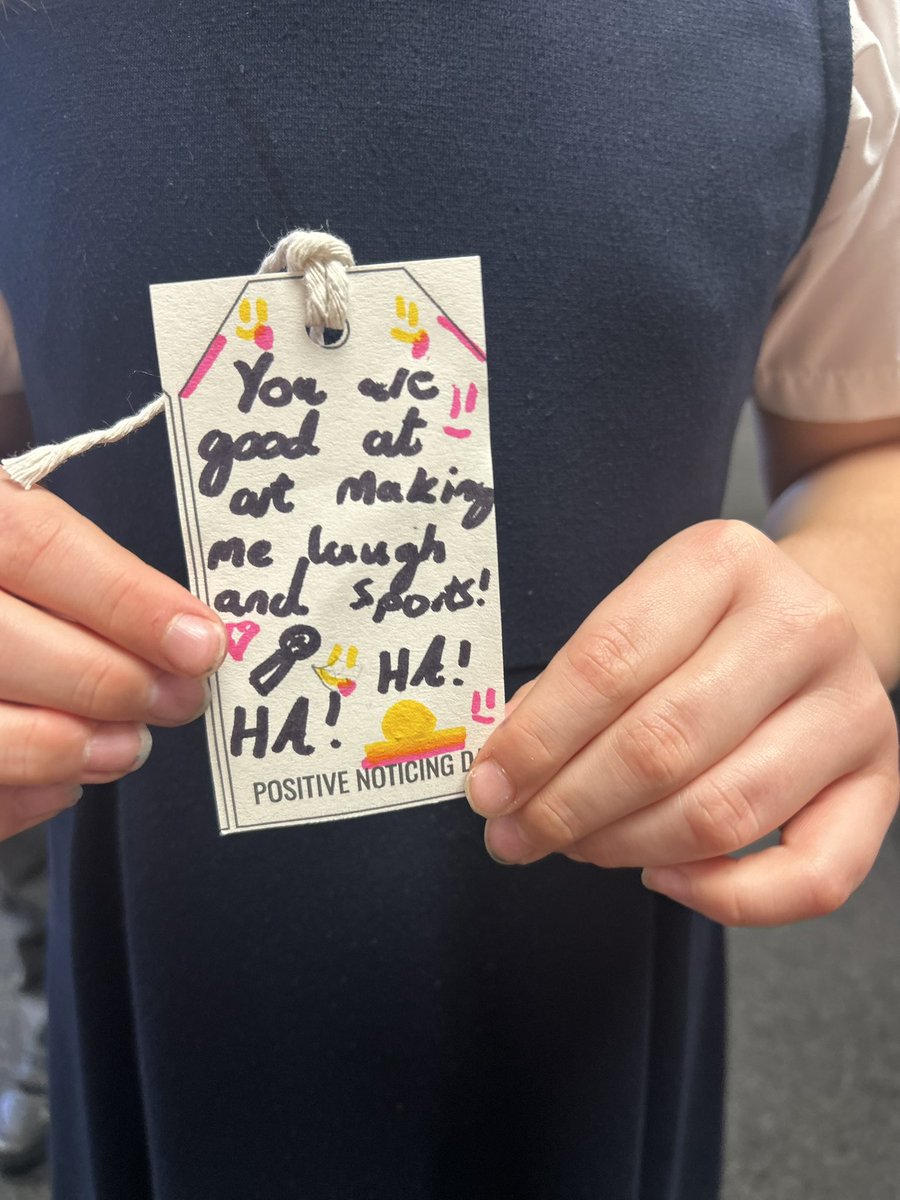 You are
good at
art Making
me laugh
and sports!
HA!
HA!
POSITIVE NOTICING